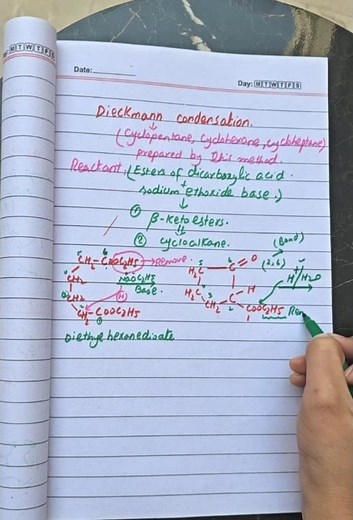 Date:
Day: M T W T F S
Dieckmann condensation.
(Cyclopentane, Cyclohexane, cycloheptane)
prepared by this method.
Reactant (Esters of dicarboxylic acid.
+
sodium ethoxide base.)
① β-Ketoesters.
② cycloalkane.
(Bond)
(2,6)
CH2 - COOC2H5 → remove.
NaOC2H5
Base.
(H)
CH2
CH2
CH2 - COOC2H5
H2C
C = O
H2C
H2C
C
H
COOC2H5
H+/H2O
Diethyl hexanedioate